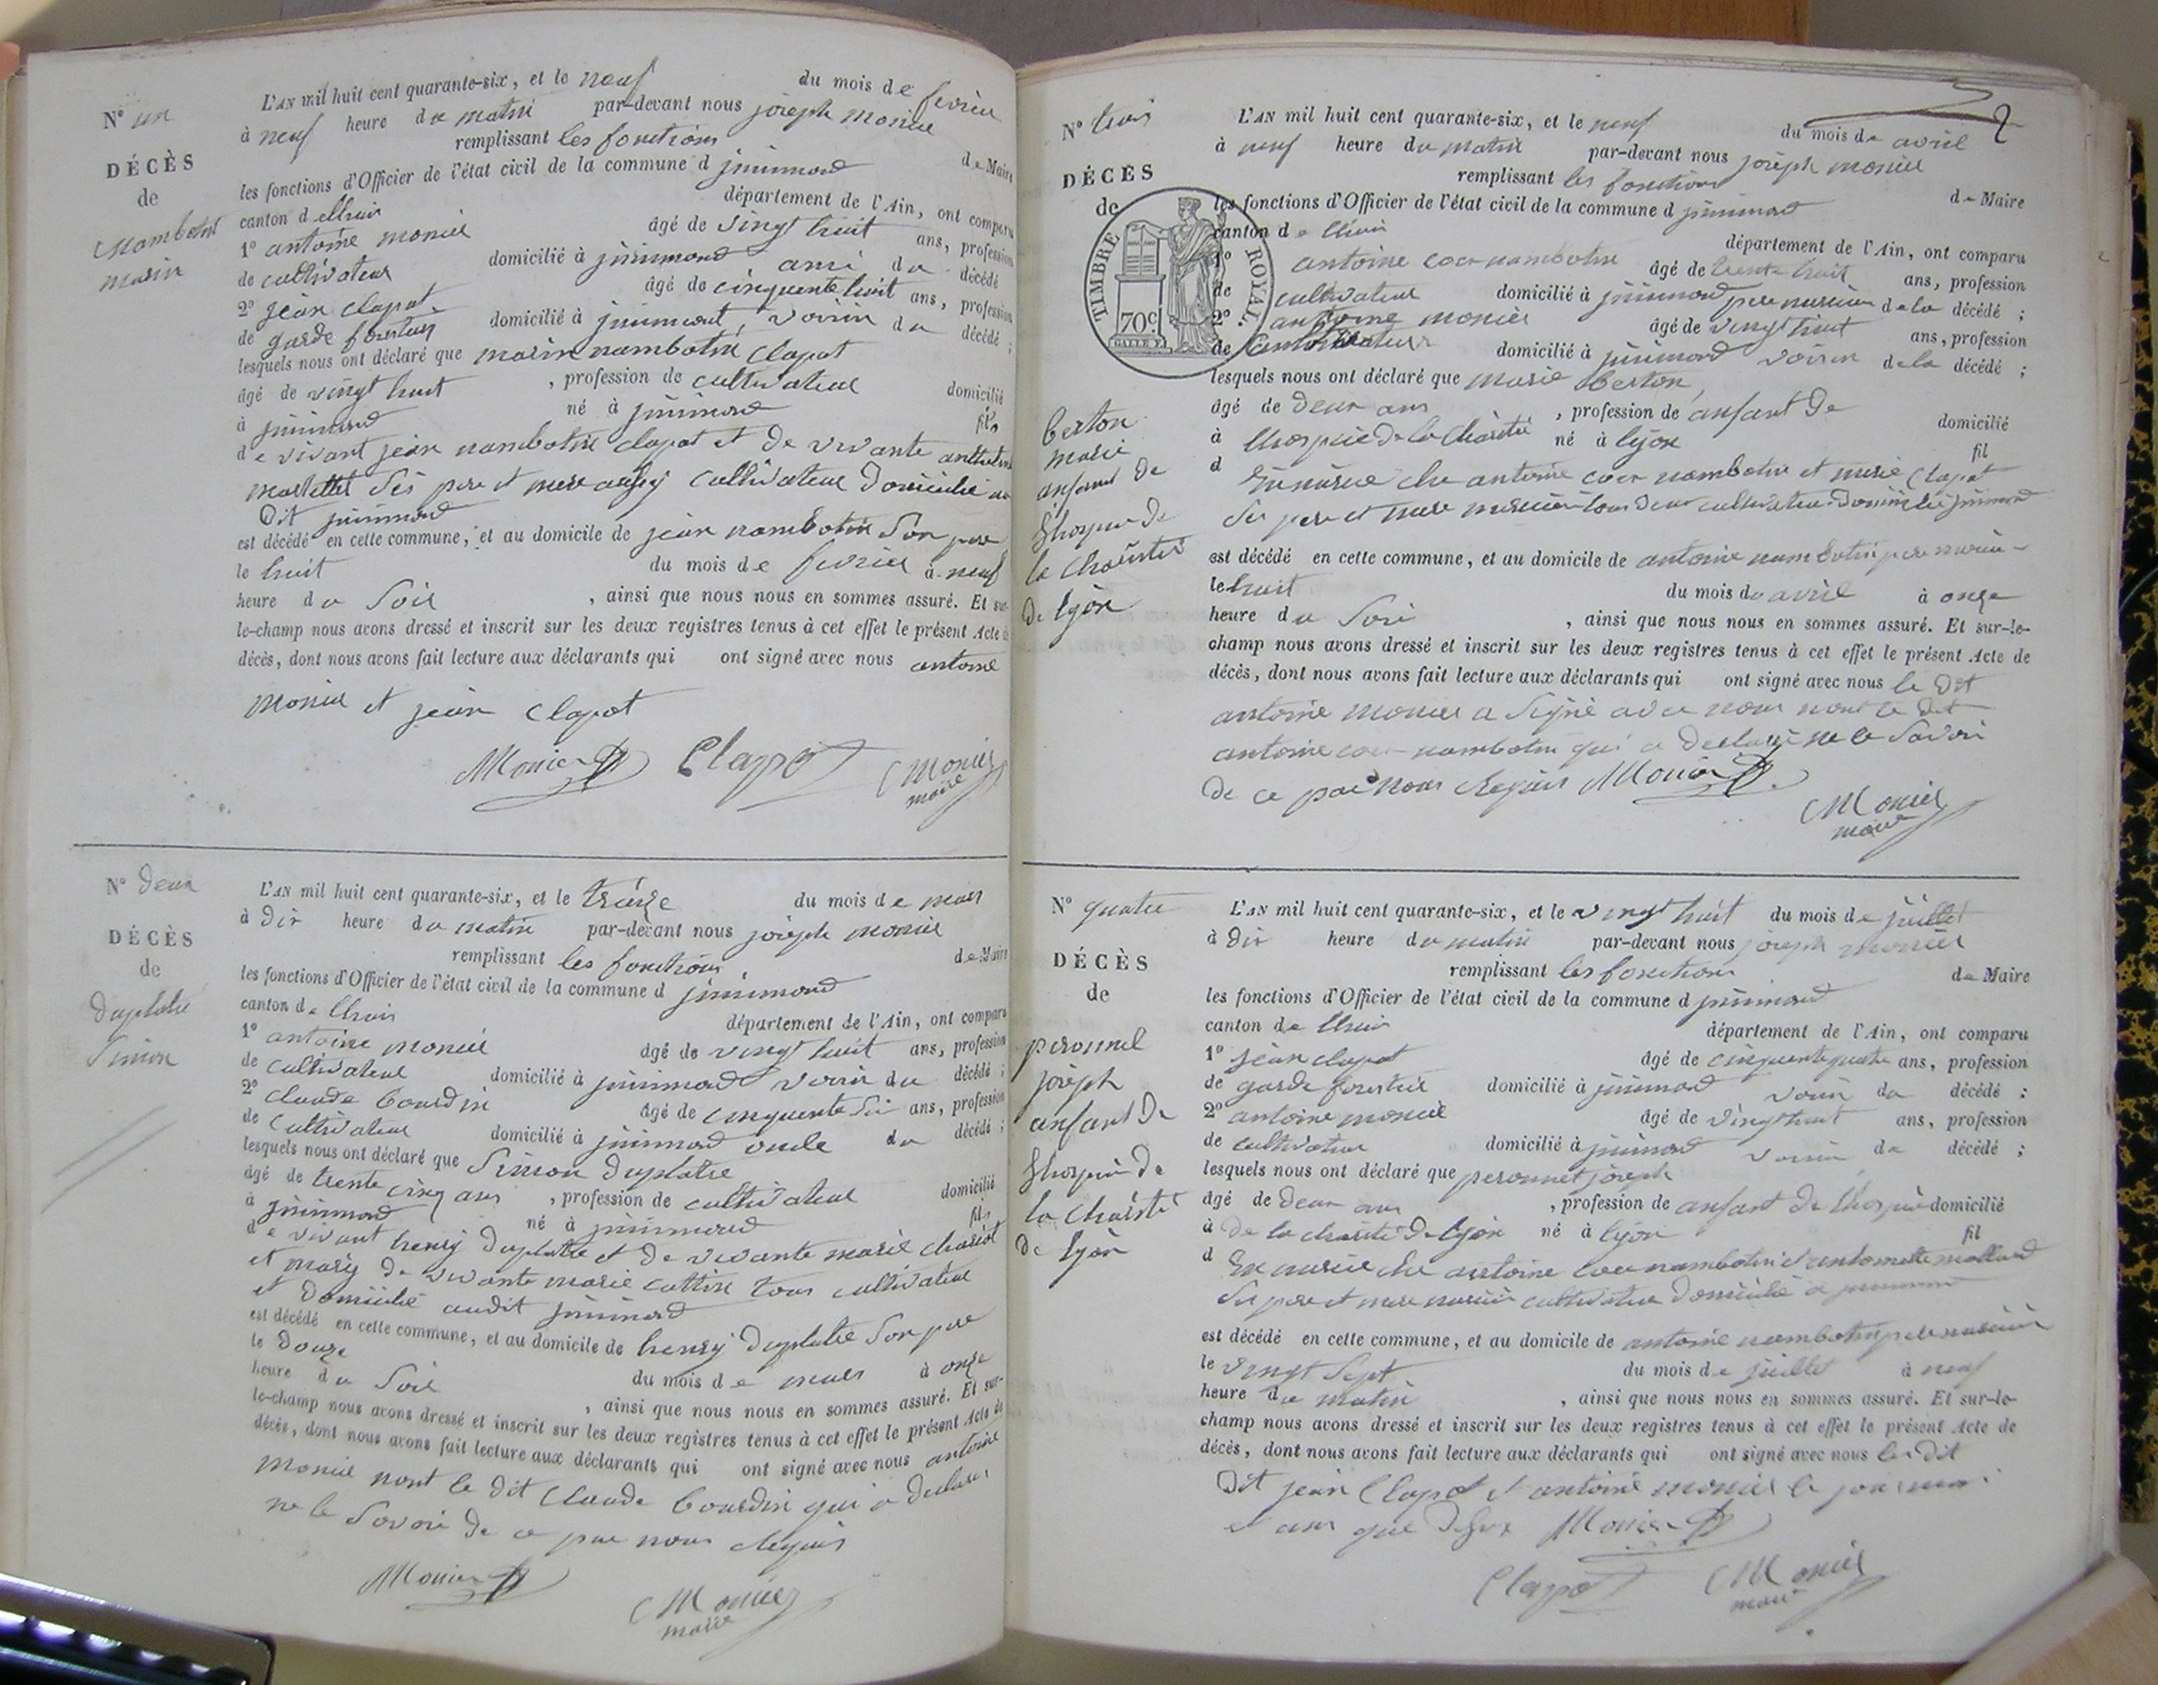 N° un
DÉCÈS
de
Nambotin
marin
L'AN mil huit cent quarante-six, et le neuf du mois de fevrier
à neuf heure du matin par-devant nous joseph monier
remplissant les fonctions de Maire
les fonctions d'Officier de l'état civil de la commune d
canton d département de l'Ain, ont comparu
1° antoine monier âgé de vingt huit ans, profession
de cultivateur domicilié à ami du décédé
2° jean clapot âgé de cinquente huit ans, profession
de garde forestier domicilié à voisin du décédé ;
lesquels nous ont déclaré que marin nambotin clapot
âgé de vingt huit , profession de cultivateur domicilié
à né à fils
de vivant jean nambotin clapot et de vivante
ses pere et mere cultivateur domicilié au
Dit
est décédé en cette commune, et au domicile de jean nambotin son pere
le huit du mois de fevrier à neuf
heure du soir , ainsi que nous nous en sommes assuré. Et sur-
le-champ nous avons dressé et inscrit sur les deux registres tenus à cet effet le présent Acte de
décès, dont nous avons fait lecture aux déclarants qui ont signé avec nous antoine
monier et jean clapot
Monier Clapot Monier
maire
N° deux
DÉCÈS
de
duplatre
Simon
L'AN mil huit cent quarante-six, et le treize du mois de mars
à dix heure du matin par-devant nous joseph monier
remplissant les fonctions de Maire
les fonctions d'Officier de l'état civil de la commune d
canton de département de l'Ain, ont comparu
1° antoine monier âgé de vingt huit ans, profession
de cultivateur domicilié à voisin du décédé ;
2° claude bourdin âgé de cinquente six ans, profession
de cultivateur domicilié à oncle du décédé ;
lesquels nous ont déclaré que Simon duplatre
âgé de trente cinq ans , profession de cultivateur domicilié
à né à fils
de vivant henry duplatre et de vivante marie chariot
et mary de vivante marie cottin tous cultivateur
et domicilié audit
est décédé en cette commune, et au domicile de henry duplatre son pere
le douze du mois de mars à onze
heure du soir , ainsi que nous nous en sommes assuré. Et sur-
le-champ nous avons dressé et inscrit sur les deux registres tenus à cet effet le présent Acte de
décès, dont nous avons fait lecture aux déclarants qui ont signé avec nous antoine
monier nont le dit Claude bourdin qui a declaré
ne le savoir de ce par nous requis
Monier
Monier
maire
2
N° trois
DÉCÈS
de
TIMBRE ROYAL.
70c
berton
marie
anfant de
lhospice de
la charité
de lyon
L'AN mil huit cent quarante-six, et le neuf du mois de avril
à neuf heure du matin par-devant nous joseph monier
remplissant les fonctions de Maire
les fonctions d'Officier de l'état civil de la commune d
canton de département de l'Ain, ont comparu
1° antoine nambotin âgé de trente huit ans, profession
de cultivateur domicilié à pere de la décédé ;
2° antoine monier âgé de vingt huit ans, profession
de domicilié à voisin de la décédé ;
lesquels nous ont déclaré que marie berton
âgé de deux ans , profession de anfant de domicilié
à lhospice de la charité né à lyon fil
d che antoine nambotin et marie clapot
ses pere et mere tous deux cultivateur
est décédé en cette commune, et au domicile de antoine nambotin pere
le huit du mois de avril à onze
heure du soir , ainsi que nous nous en sommes assuré. Et sur-le-
champ nous avons dressé et inscrit sur les deux registres tenus à cet effet le présent Acte de
décès, dont nous avons fait lecture aux déclarants qui ont signé avec nous le dit
antoine monier a signé avec nous nont le dit
antoine nambotin qui a declaré ne le savoir
de ce par nous requis Monier
Monier
maire
N° quatre
DÉCÈS
de
joseph
anfant de
lhospice de
la charité
de lyon
L'AN mil huit cent quarante-six, et le vingt huit du mois de juillet
à dix heure du matin par-devant nous joseph monier
remplissant les fonctions de Maire
les fonctions d'Officier de l'état civil de la commune d
canton de département de l'Ain, ont comparu
1° jean clapot âgé de cinquente quatre ans, profession
de garde forestier domicilié à voisin du décédé :
2° antoine monier âgé de vingt huit ans, profession
de cultivateur domicilié à voisin du décédé ;
lesquels nous ont déclaré que peronnet joseph
âgé de deux ans , profession de anfant de lhospice domicilié
à de la charité de lyon né à lyon fil
d che antoine nambotin et antoinette
ses pere et mere cultivateur domicilié a
est décédé en cette commune, et au domicile de antoine nambotin pere
le vingt sept du mois de juillet à neuf
heure du matin , ainsi que nous nous en sommes assuré. Et sur-le-
champ nous avons dressé et inscrit sur les deux registres tenus à cet effet le présent Acte de
décès, dont nous avons fait lecture aux déclarants qui ont signé avec nous les dit
Dit jean clapot et antoine monier le jour mois
et ans que Monier
Clapot Monier
maire